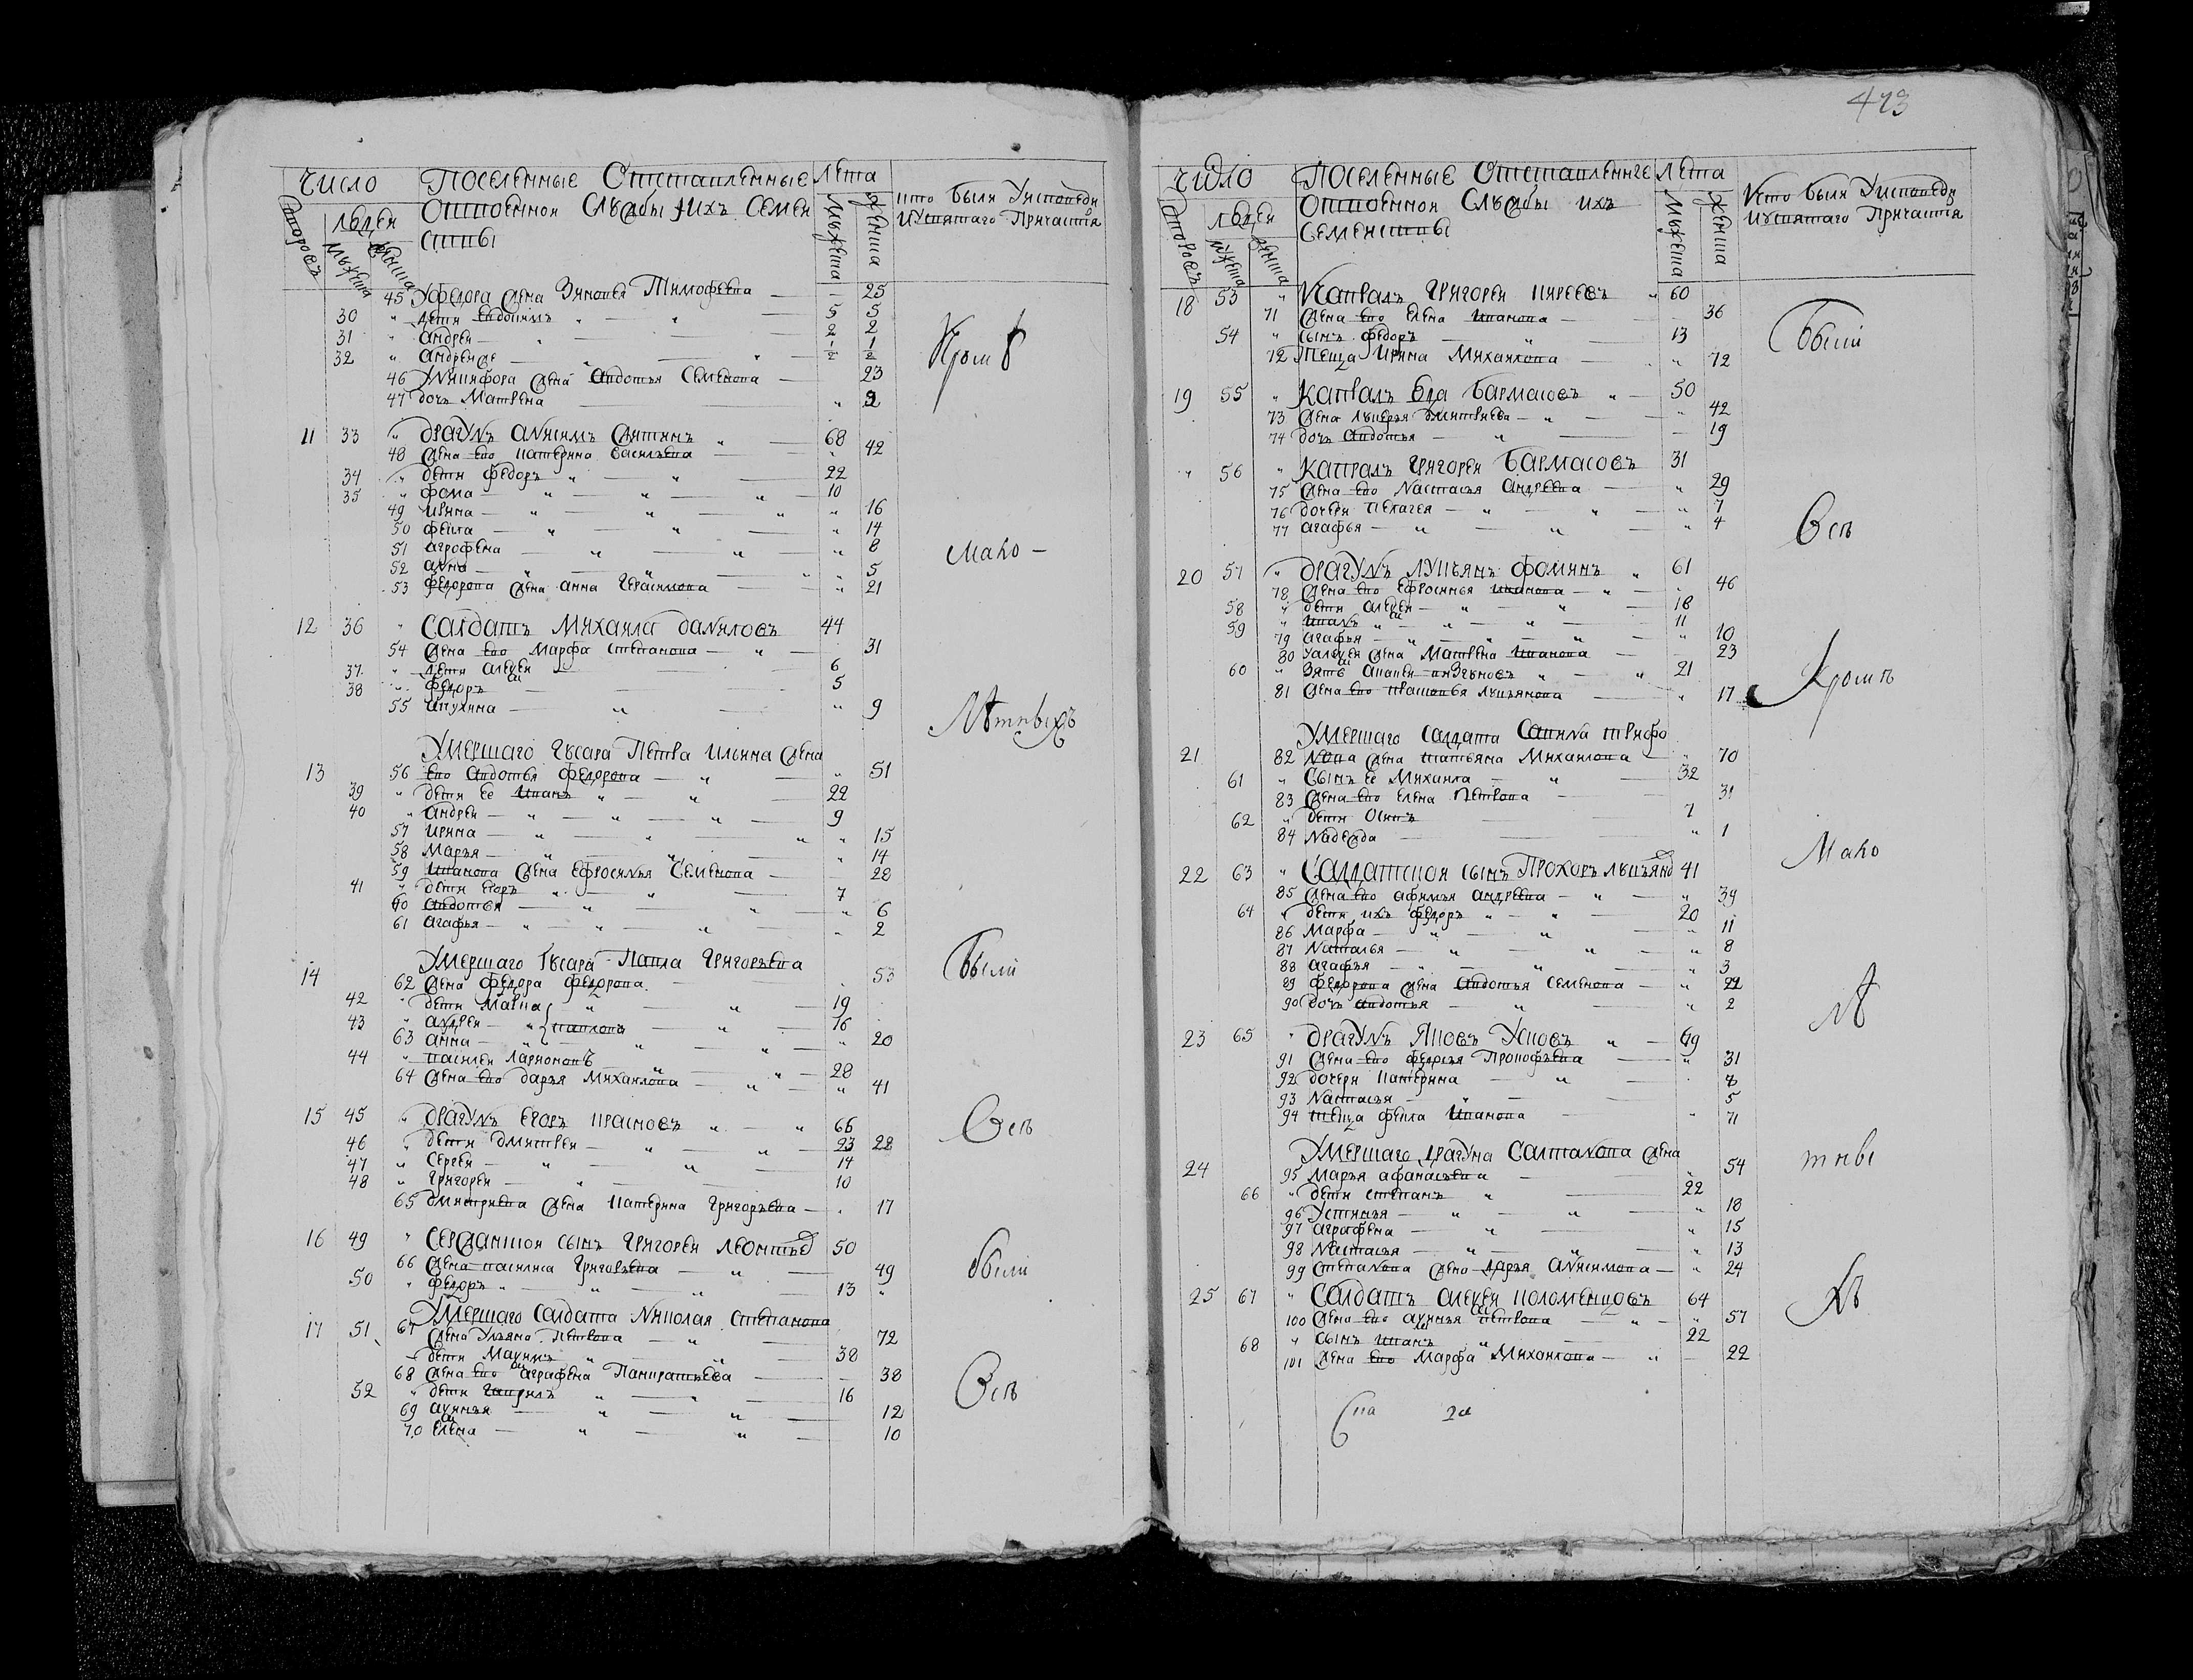 Число Поселенные Отставленные Лѣта
Отвоенной Службы иихъ Семей кто были Уисповеди
Дворовъ Людей ствы Мужеска Женска Исвятаго Причастия
Мужеска Женска
45 Уфедора жена Зиновья Тимофеева — 25
30 " дети Евдокимъ " 5 5
31 " Андрей — 2 2
32 " Андрей же — 1/2 1/2
Кромѣ
46 Уникифора жена Авдотья Семенова — 23
47 дочь Матрена " 2
11 33 " Драгунъ Анисимъ 68
48 жена ево Катерина Васильева — 42
34 " дети Федоръ " 22
35 " Фома — 10
49 Ирина — " 16
50 Фекла — " 14
51 Агрофена — " 8
мало —
52 Анна — " 5
53 Федорова жена Анна Герасимова — " 21
12 36 " Салдатъ Михаила Даниловъ 44
54 жена ево Марфа Степанова — 31
37 " дети Алексей 6
38 " Федоръ 5
55 " 9
Лѣтныхъ
Умершаго Гусара Петра Ильина жена
13 56 ево Авдотья Федорова — " 51
39 " дети ее Иванъ " 22
40 " Андрей — 9
57 Ирина — " 15
58 Марья — " 14
59 Иванова жена Ефросинья Семенова — 28
41 " дети Егоръ " 7
60 Авдотья — " 6
61 Агафья — " 2
Умершаго Гусара Павла Григорьева
были
14 62 жена Федора Федорова — 53
42 " дети " 19
43 " Андрей — Павловъ 16
63 Анна — " 20
44 " Василей Ларионовъ — 28
64 жена ево Дарья Михайлова — " 41
15 45 " Драгунъ Егоръ Красновъ " 66
Всѣ
46 " дети Дмитрей — 23 28
47 " Сергей — 14
48 " Григорей — 10
65 Дмитриева жена Катерина Григорьева — 17
16 49 " сынъ Григорей 50
66 жена Василиса Григорьева — 49
были
50 " Федоръ " 13 "
Умершаго Салдата Николая Степанова
17 51 67 жена Ульяна Петрова — 72
— дети 38
68 жена ево Аграфена Панкратьева — 38
52 " дети Гаврилъ " 16
Всѣ
69 " 12
70 Елена — 10
423
Число Поселенные Отставленные Лѣта
Отвоенной Службы ихъ Кто были Уисповеди
Дворовъ Людей Семействы Мужеска Женска Исвятаго Причастия
Мужеска Женска
18 53 " Капралъ Григорей " 60
71 жена ево Елена Иванова — 36
были
54 " сынъ Федоръ 13
72 Теща Ирина Михайлова — " 72
19 55 " Капралъ Бармасовъ " 50
73 жена Лукерья Дмитриева — " 42
74 дочь Авдотья — 19
" 56 " Капралъ Григорей Бармасовъ 31
75 жена ево Настасья Андреева " 29
76 дочери Пелагея — " 7
77 Агафья — " 4
Всѣ
20 57 " Драгунъ Лукьянъ Фоминъ " 61
78 жена ево Ефросинья Иванова — 46
58 " дети Алексей — 18
59 " Иванъ 11
79 Агафья — " 10
80 Уалексея жена Матрена Иванова 23
60 " Зять " 21
81 жена ево Лукьянова " 17
Кромѣ
Умершаго Салдата
21 82 жена Татьяна Михайлова — " 70
61 " Сынъ ее Михайла — 32
83 жена ево Елена Петрова — 31
62 " дети Осипъ 7
84 Надежда — " 1
мало
22 63 " Салдатской сынъ Прохоръ Лукьяно 41
85 жена ево Афимья Андреева — " 34
64 " дети ихъ Федоръ " 20
86 Марфа — " 11
87 Наталья — " 8
88 Агафья — " 3
89 Федорова жена Авдотья Семенова — " 22
90 дочь Авдотья — " 2
лѣ
23 65 " Драгунъ Яковъ "
91 жена ево Федосья Прокофьева " 31
92 дочери Катерина — 8
93 Настасья — 5
94 теща Фекла Иванова " 71
Умершаго Драгуна жена
тны
24 95 Марья Афанасьева " 54
66 " дети Степанъ " 22
96 Устинья — " 18
97 Аграфена — " 15
98 Настасья — " 13
99 Степанова жена Дарья Анисимова — " 24
25 67 " Салдатъ Алексей Коломенцовъ 64
хъ
100 жена ево Петрова — " 57
68 " сынъ Иванъ 22
101 жена ево Марфа Михайлова — 22